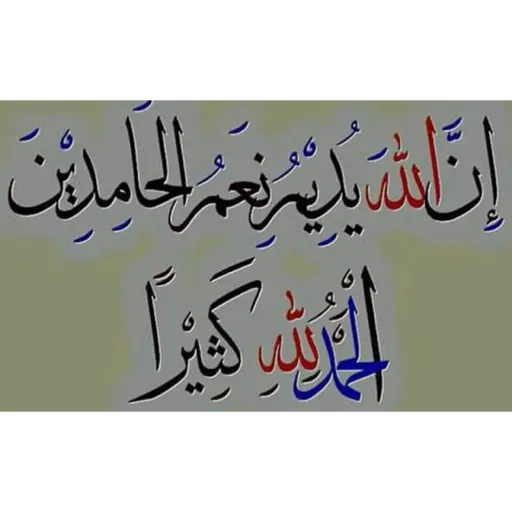 إِنَّ اللهَ يُدِيْمُ نِعَمُ الحَامِدِيْنَ
الْحَمْدُ لِلّٰهِ كَثِيْرًا